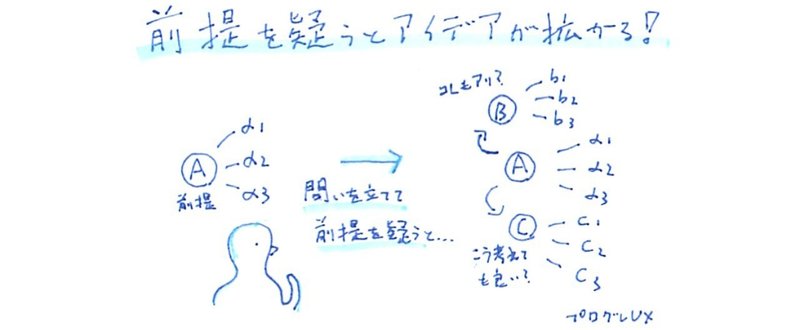 前提を疑うとアイデアが拡がる!
A
前提
α1
α2
α3
問いを立てて
前提を疑うと...
コレもアリ?
B
b1
b2
b3
A
α1
α2
α3
C
こう考えて
も良い?
C1
C2
C3
プログレUX